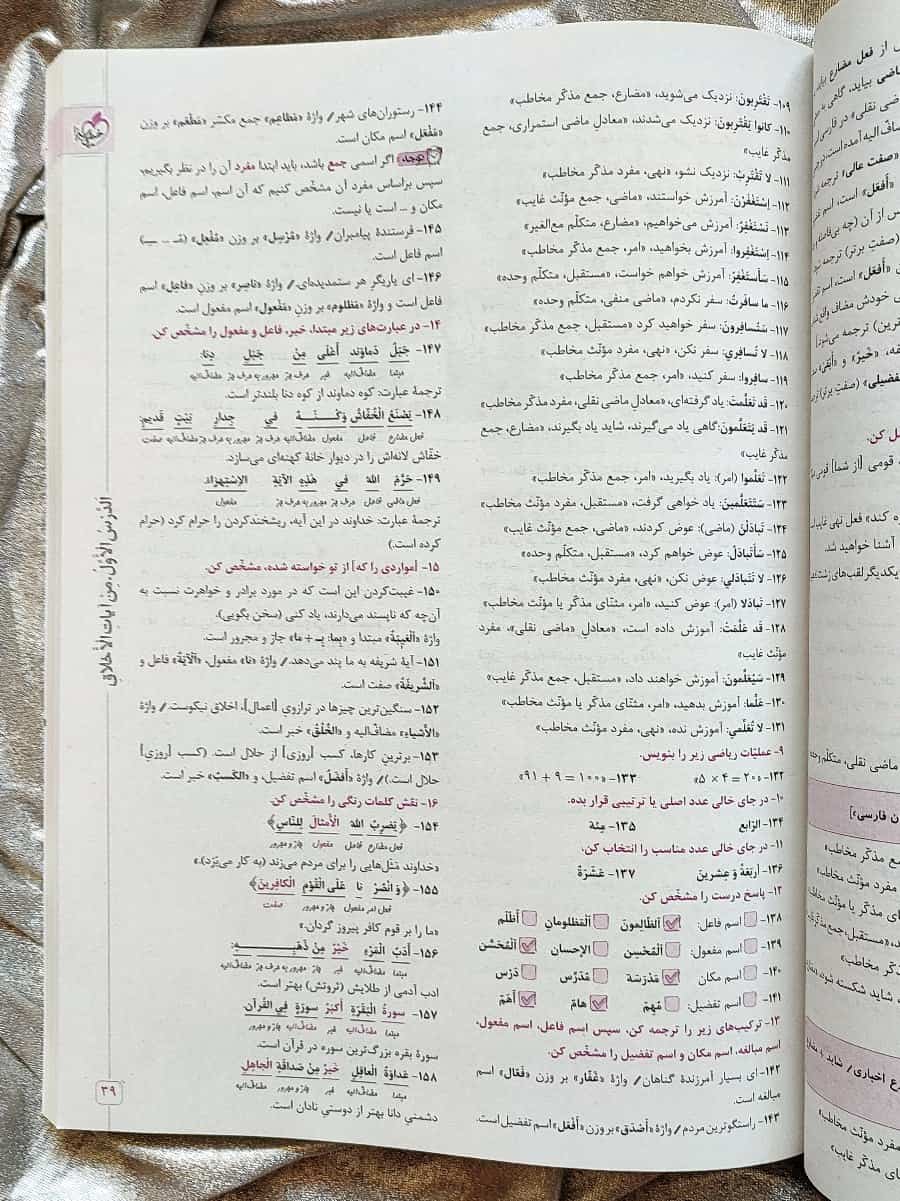 ۱۰۹- تَقْتَرِبونَ: نزدیک می‌شوید، «مضارع، جمع مذکّر مخاطب»
۱۱۰- کانوا یَقْتَرِبونَ: نزدیک می‌شدند، «معادلِ ماضی استمراری، جمع
مذکّر غایب»
۱۱۱- لا تَقْتَرِبْ: نزدیک نشو، «نهی، مفرد مذکّر مخاطب»
۱۱۲- اِسْتَغْفَرْنَ: آمرزش خواستند، «ماضی، جمع مؤنّث غایب»
۱۱۳- نَسْتَغْفِرُ: آمرزش می‌خواهیم، «مضارع، متکلّم مع‌الغیر»
۱۱۴- اِسْتَغْفِروا: آمرزش بخواهید، «امر، جمع مذکّر مخاطب»
۱۱۵- سَأَسْتَغْفِرُ: آمرزش خواهم خواست، «مستقبل، متکلّم وحده»
۱۱۶- ما سافَرْتُ: سفر نکردم، «ماضی منفی، متکلّم وحده»
۱۱۷- سَتُسافِرونَ: سفر خواهید کرد «مستقبل، جمع مذکّر مخاطب»
۱۱۸- لا تُسافِري: سفر نکن، «نهی، مفرد مؤنّث مخاطب»
۱۱۹- سافِروا: سفر کنید، «امر، جمع مذکّر مخاطب»
۱۲۰- قَد تَعَلَّمْتَ: یاد گرفته‌ای، «معادلِ ماضی نقلی، مفرد مذکّر مخاطب»
۱۲۱- قَد یَتَعَلَّمونَ: گاهی یاد می‌گیرند، شاید یاد بگیرند، «مضارع، جمع
مذکّر غایب»
۱۲۲- تَعَلَّموا (امر): یاد بگیرید، «امر، جمع مذکّر مخاطب»
۱۲۳- سَتَتَعَلَّمینَ: یاد خواهی گرفت، «مستقبل، مفرد مؤنّث مخاطب»
۱۲۴- تَبادَلْنَ (ماضی): عوض کردند، «ماضی، جمع مؤنّث غایب»
۱۲۵- سَأَتَبادَلُ: عوض خواهم کرد، «مستقبل، متکلّم وحده»
۱۲۶- لا تَتَبادَلي: عوض نکن، «نهی، مفرد مؤنّث مخاطب»
۱۲۷- تَبادَلا (امر): عوض کنید، «امر، مثنّای مذکّر یا مؤنّث مخاطب»
۱۲۸- قَد عَلَّمَتْ: آموزش داده است، «معادلِ «ماضی نقلی»، مفرد
مؤنّث غایب»
۱۲۹- سَیُعَلِّمونَ: آموزش خواهند داد، «مستقبل، جمع مذکّر غایب»
۱۳۰- عَلِّما: آموزش بدهید، «امر، مثنّای مذکّر یا مؤنّث مخاطب»
۱۳۱- لا تُعَلِّمي: آموزش نده، «نهی، مفرد مؤنّث مخاطب»
۹- عملیّات ریاضی زیر را بنویس.
۱۳۲- «۵ × ۴ = ۲۰» ۱۳۳- «۹۱ + ۹ = ۱۰۰»
۱۰- در جای خالی عدد اصلی یا ترتیبی قرار بده.
۱۳۴- الرّابع ۱۳۵- مِئة
۱۱- در جای خالی عدد مناسب را انتخاب کن.
۱۳۶- أربَعَةً وَ عِشرینَ ۱۳۷- عَشَرَةٌ
۱۲- پاسخ درست را مشخّص کن.
۱۳۸- اسم فاعل: اَلظّالِمونَ اَلْمَظلومانِ أَظْلَم
۱۳۹- اسم مفعول: اَلْمُحْسِن الإحسان اَلْمُحْسَن
۱۴۰- اسم مکان: مَدْرَسَة مُدَرِّس دَرْس
۱۴۱- اسم تفضیل: مُهِمّ هامّ أَهَمّ
۱۳- ترکیب‌های زیر را ترجمه کن، سپس اسم فاعل، اسم مفعول،
اسم مبالغه، اسم مکان و اسم تفضیل را مشخّص کن.
۱۴۲- ای بسیار آمرزندۀ گناهان/ واژۀ «غَفّار» بر وزن «فَعّال» اسم
مبالغه است.
۱۴۳- راستگوترین مردم/ واژۀ «أَصْدَق» بر وزن «أَفْعَل» اسم تفضیل است.
۱۴۴- رستوران‌های شهر/ واژۀ «مَطاعِم» جمع مکسّر «مَطْعَم» بر وزن
«مَفْعَل» اسم مکان است.
توجه: اگر اسمی جمع باشد، باید ابتدا مفرد آن را در نظر بگیریم،
سپس براساس مفرد آن مشخّص کنیم که آن اسم، اسم فاعل، اسم
مکان و ... است یا نیست.
۱۴۵- فرستندۀ پیامبران/ واژۀ «مُرْسِل» بر وزن «مُفْعِل» (مُـ ـــِـ)
اسم فاعل است.
۱۴۶- ای یاریگر هر ستمدیده‌ای./ واژۀ «ناصِر» بر وزن «فاعِل» اسم
فاعل است و واژۀ «مَظلوم» بر وزنِ «مَفْعول» اسم مفعول است.
۱۴- در عبارت‌های زیر مبتدا، خبر، فاعل و مفعول را مشخّص کن.
۱۴۷- جَبَلُ دَماوَند أَعْلَی مِنْ جَبَلِ دِنا:
مبتدا مضاف‌الیه خبر حرف جرّ مجرور به حرف جرّ مضاف‌الیه
ترجمۀ عبارت: کوه دماوند از کوه دنا بلندتر است.
۱۴۸- یَصْنَعُ الْخُفّاشُ وَکْـــنَـــهُ في جِدارِ بَیْتٍ قَدیمٍ:
فعل مضارع فاعل مفعول مضاف‌الیه حرف جرّ مجرور به حرف جرّ مضاف‌الیه صفت
خفّاش لانه‌اش را در دیوار خانۀ کهنه‌ای می‌سازد.
۱۴۹- حَرَّمَ اللهُ في هٰذِهِ الْآیَةِ الاِسْتِهْزاءَ
فعل ماضی فاعل حرف جرّ مجرور به حرف جرّ مفعول
ترجمۀ عبارت: خداوند در این آیه، ریشخندکردن را حرام کرد (حرام
کرده است.)
۱۵- [مواردی را که] از تو خواسته شده، مشخّص کن.
۱۵۰- غیبت‌کردن این است که در مورد برادر و خواهرت نسبت به
آن‌چه که ناپسند می‌دارند، یاد کنی (سخن بگویی).
واژۀ «اَلْغیبَةُ» مبتدا و «بِما: بِـ + ما» جارّ و مجرور است.
۱۵۱- آیۀ شریفه به ما پند می‌دهد./ واژۀ «نا» مفعول، «اَلْآیَةُ» فاعل و
«اَلشَّریفَةُ» صفت است.
۱۵۲- سنگین‌ترین چیزها در ترازوی [اعمال]، اخلاق نیکوست./ واژۀ
«الأشیاءِ» مضاف‌الیه و «الْخُلُقُ» خبر است.
۱۵۳- برترینِ کارها، کسب [روزی] از حلال است. (کسب [روزیِ]
حلال است.)/ واژۀ «أَفْضَلُ» اسم تفضیل، و «الکَسبُ» خبر است.
۱۶- نقش کلمات رنگی را مشخّص کن.
۱۵۴- ﴿یَضرِبُ اللهُ الْأَمثالَ لِلنّاسِ﴾
فعل مضارع فاعل مفعول جارّ و مجرور
«خداوند مَثَل‌هایی را برای مردم می‌زند (به کار می‌بَرَد).»
۱۵۵- ﴿وَ انْصُرْ نا عَلَی الْقَوْمِ الْکافِرینَ﴾
فعل امر مفعول جارّ و مجرور صفت
«ما را بر قوم کافر پیروز گردان.»
۱۵۶- أَدَبُ الْمَرْءِ خَیْرٌ مِنْ ذَهَبِـــــهِ:
مبتدا مضاف‌الیه خبر حرف جرّ مجرور به حرف جرّ مضاف‌الیه
ادب آدمی از طلایش (ثروتش) بهتر است.
۱۵۷- سورَةُ الْبَقَرَةِ أَکبَرُ سورَةٍ فِي القُرآنِ
مبتدا مضاف‌الیه خبر مضاف‌الیه جارّ و مجرور
سورۀ بقره بزرگ‌ترین سوره در قرآن است.
۱۵۸- عَداوَةُ الْعاقِلِ خَیْرٌ مِنْ صَداقَةِ الْجاهِلِ
مبتدا مضاف‌الیه خبر جارّ و مجرور مضاف‌الیه
دشمنیِ دانا بهتر از دوستیِ نادان است.
اَلدَّرْسُ الْأَوَّلُ، مِنْ آیاتِ الْأَخْلاقِ
۳۹